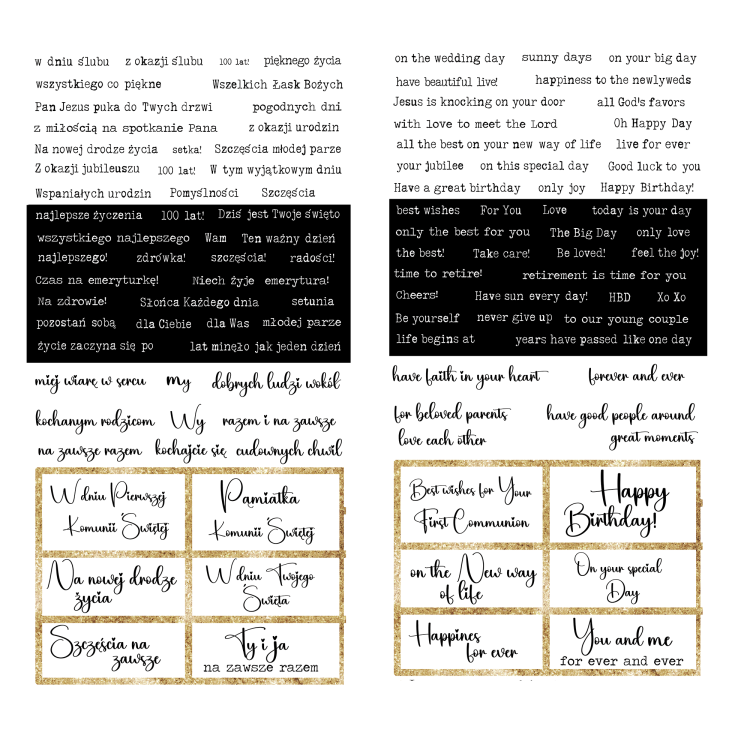 w dniu ślubu z okazji ślubu 100 lat! pięknego życia
wszystkiego co piękne Wszelkich Łask Bożych
Pan Jezus puka do Twych drzwi pogodnych dni
z miłością na spotkanie Pana z okazji urodzin
Na nowej drodze życia setka! Szczęścia młodej parze
Z okazji jubileuszu 100 lat! W tym wyjątkowym dniu
Wspaniałych urodzin Pomyślności Szczęścia
najlepsze życzenia 100 lat! Dziś jest Twoje święto
wszystkiego najlepszego Wam Ten ważny dzień
najlepszego! zdrówka! szczęścia! radości!
Czas na emeryturkę! Niech żyje emerytura!
Na zdrowie! Słońca Każdego dnia setunia
pozostań sobą dla Ciebie dla Was młodej parze
życie zaczyna się po lat minęło jak jeden dzień
miej wiarę w sercu my dobrych ludzi wokół
kochanym rodzicom Wy razem i na zawsze
na zawsze razem kochajcie się cudownych chwil
W dniu Pierwszej
Komunii Świętej
Pamiatka
Komunii Świętej
Na nowej drodze
życia
W dniu Twojego
Święta
Szczęścia na
zawsze
Ty i ja
na zawsze razem
on the wedding day sunny days on your big day
have beautiful live! happiness to the newlyweds
Jesus is knocking on your door all God's favors
with love to meet the Lord Oh Happy Day
all the best on your new way of life live for ever
your jubilee on this special day Good luck to you
Have a great birthday only joy Happy Birthday!
best wishes For You Love today is your day
only the best for you The Big Day only love
the best! Take care! Be loved! feel the joy!
time to retire! retirement is time for you
Cheers! Have sun every day! HBD Xo Xo
Be yourself never give up to our young couple
life begins at years have passed like one day
have faith in your heart forever and ever
for beloved parents have good people around
love each other great moments
Best wishes for Your
First Communion
Happy
Birthday!
on the New way
of life
On your special
Day
Happines
for ever
You and me
for ever and ever